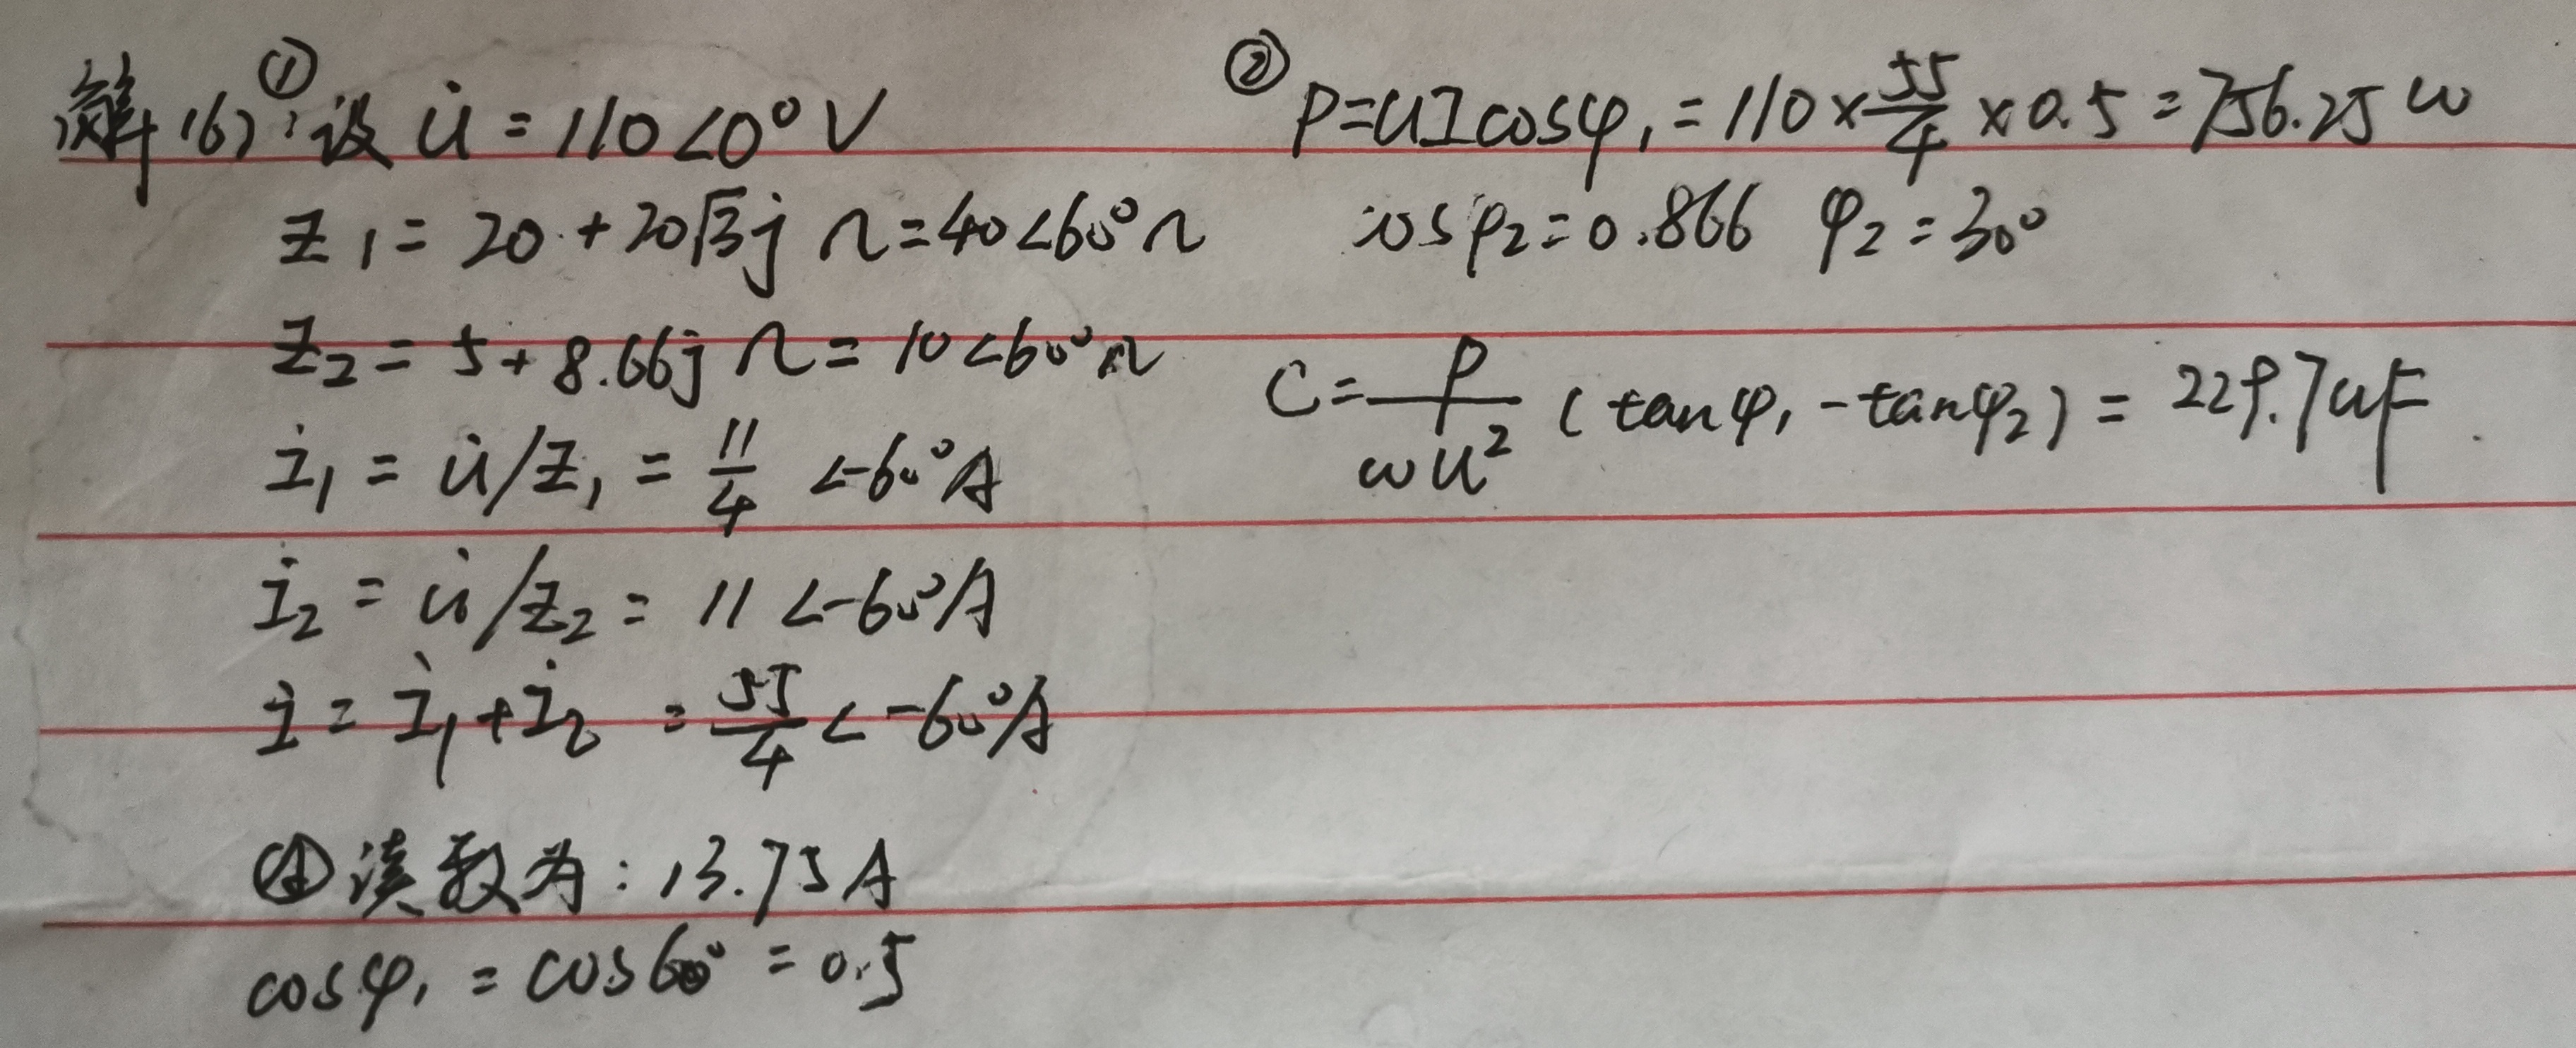 解(6)①:设 U̇ = 110∠0° V
Z₁ = 20 + 20√3j Ω = 40∠60° Ω
Z₂ = 5 + 8.66j Ω = 10∠60° Ω
İ₁ = U̇/Z₁ = 11/4 ∠-60° A
İ₂ = U̇/Z₂ = 11∠-60° A
İ = İ₁ + İ₂ = 55/4 ∠-60° A
Ⓐ读数为: 13.75A
cosφ₁ = cos60° = 0.5
② P=UIcosφ₁ = 110×55/4×0.5 = 756.25 w
cosφ₂=0.866 φ₂=30°
C = P/ωU² (tanφ₁ - tanφ₂) = 229.7uF